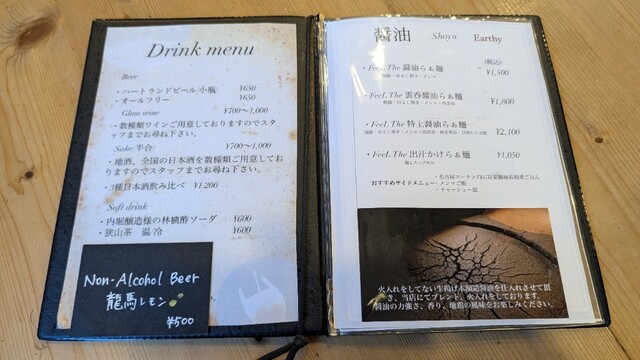 Drink menu
Beer
・ハートランドビール 小瓶 ¥650
・オールフリー ¥650
Glass wine ¥700〜1,000
・数種類ワインご用意しておりますのでスタ
ッフまでお尋ね下さい。
Sake 半合 ¥700〜1,000
・地酒、全国の日本酒を数種類ご用意してお
りますのでスタッフまでお尋ね下さい。
・3種日本酒飲み比べ ¥1,200
Soft drink
・内堀醸造様の林檎酢ソーダ ¥600
・狭山茶 温/冷 ¥600
Non-Alcohol Beer
龍馬レモン
¥500
醤油 Shoyu Earthy
(税込)
・FeeL The 醤油らぁ麺 ¥1,500
・FeeL The 雲呑醤油らぁ麺 ¥1,800
・FeeL The 特上醤油らぁ麺 ¥2,100
・FeeL The 出汁かけらぁ麺 ¥1,050
おすすめサイドメニュー ・メンマご飯
・チャーシュー飯
火入れをしてない生揚げ本醸造醤油を仕入れさせて頂
き、当店にてブレンド、火入れをしております。
醤油の力強さ、香り、地鶏の風味をお楽しみください。